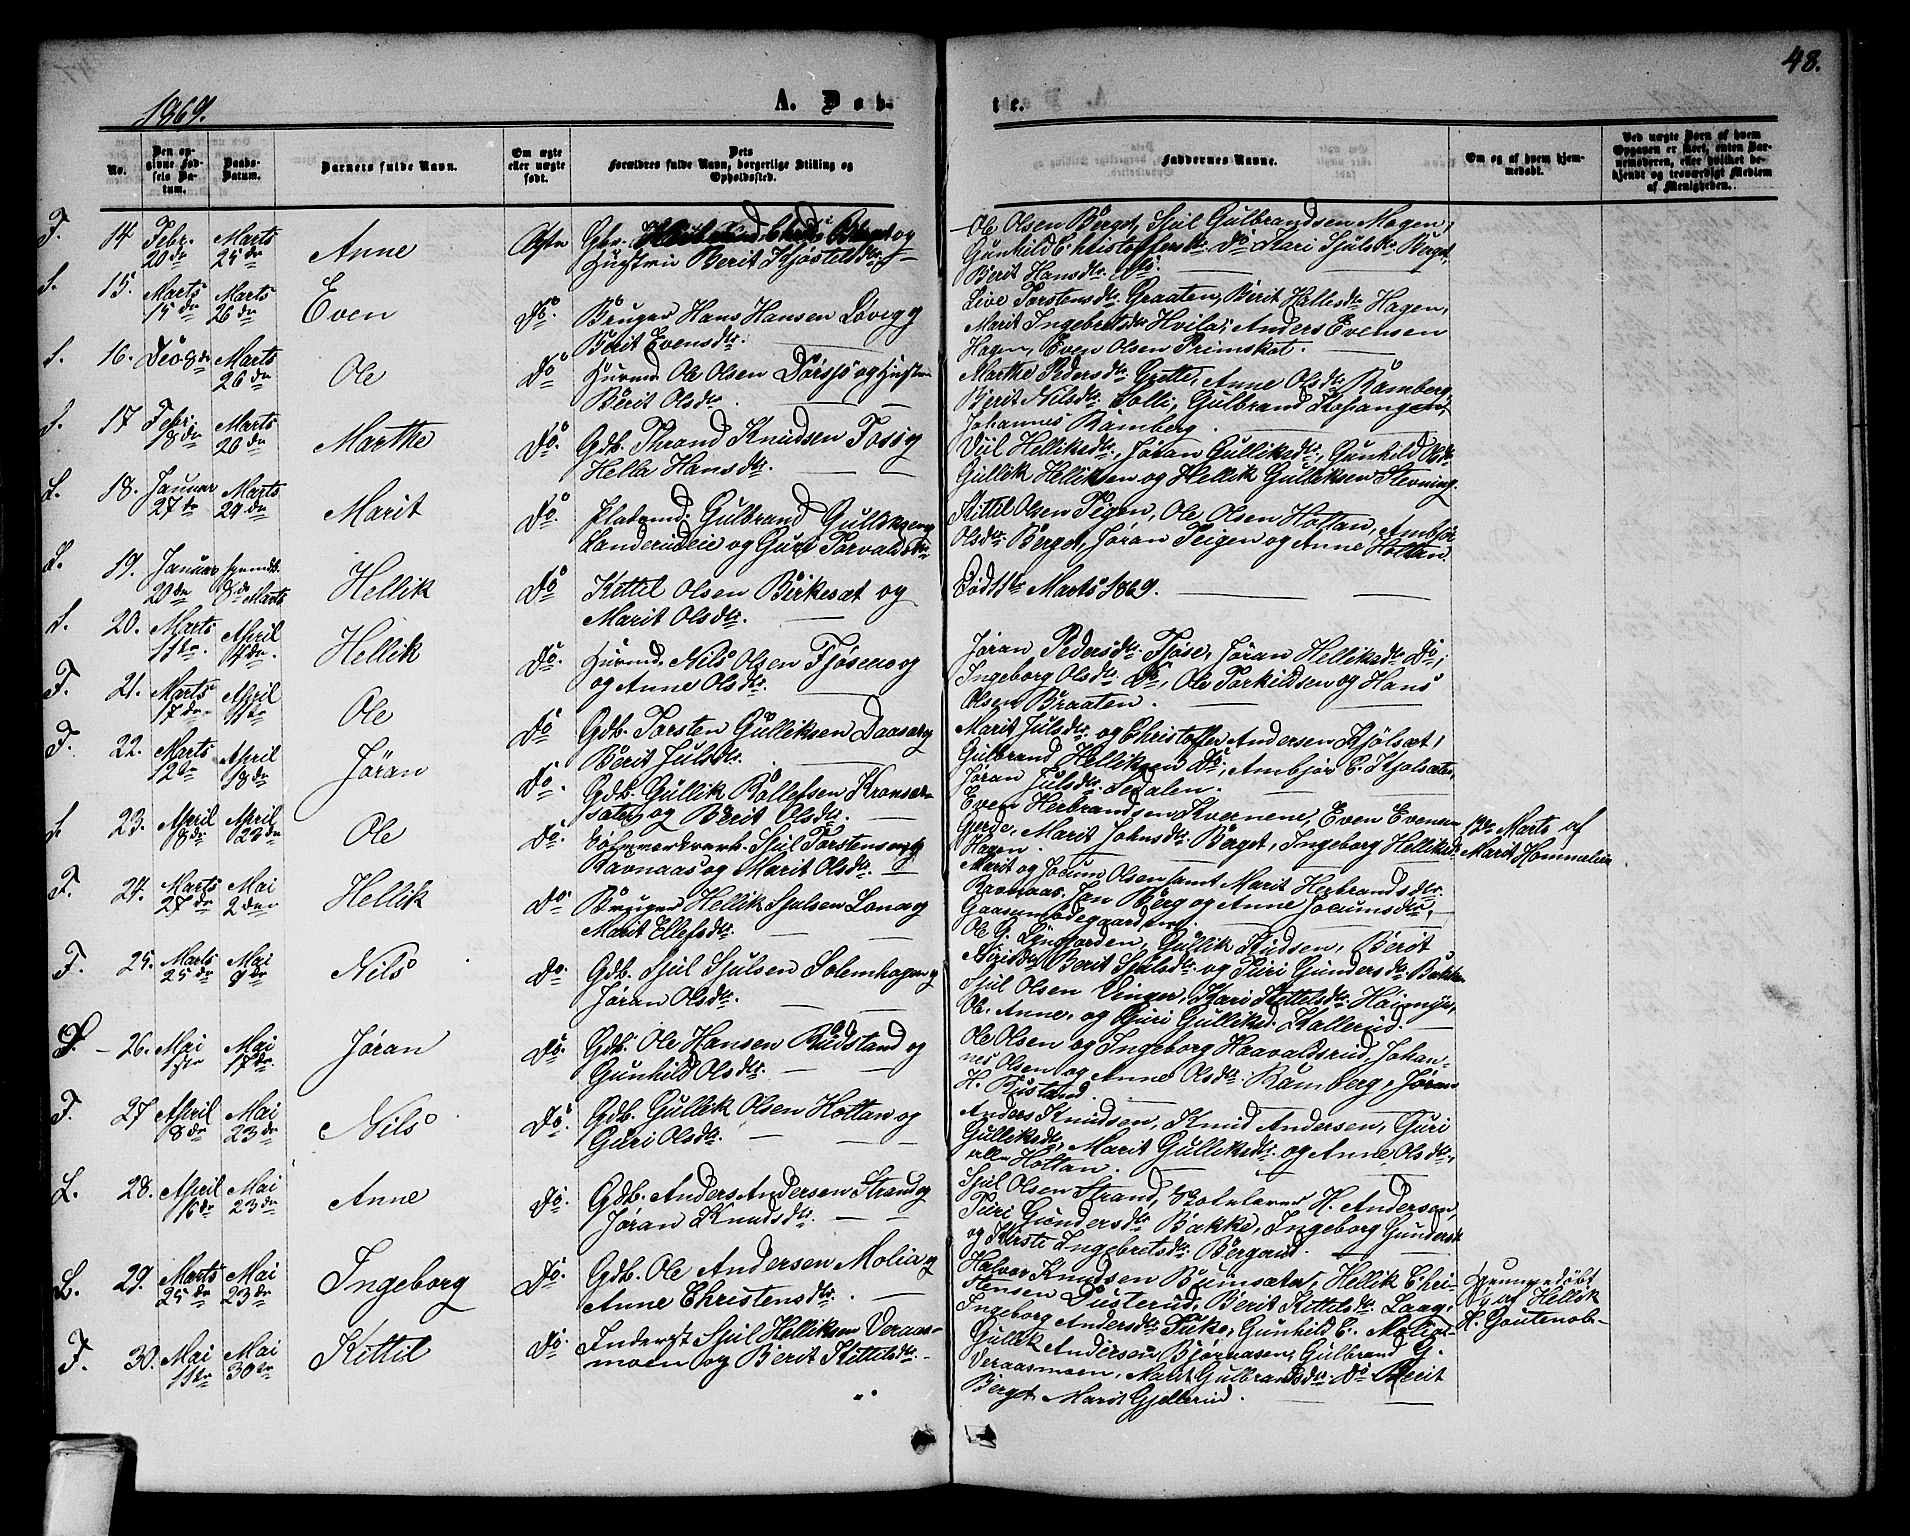 48.
1869.
A. Døb-
te.
No.
Den op-
givne Fød-
sels Da-
tum.
Daabs-
Datum.
Barnets fulde Navn.
Om ægte
eller uægte
født.
Dets
Forældres fulde Navn, borgerlige Stilling og
Opholdssted.
Faddernes Navne.
Om og af hvem hjem-
medøbt.
Ved uægte Børn af hvem
Opgaven er skeet, enten Bar-
nemoderen, eller hvilket be-
kjendt og troværdigt Medlem
af Menigheden.
F. 14 Febr. 20de Marts 25de Anne Ægte Gbr. og
Hustru Berit Kjøstelsdtr.
Ole Olsen Berget, Sjul Gulbrandsen Mogen,
Gunhild Christoffersdr. Do Kari Sjulsdr. Berget,
Berit Hansdtr. Do.
15. Marts 15de Marts 26de Even Do. Bruger Hans Hansen Løvig
Berit Evensdtr.
Live Torstensdtr. Graaten, Berit Hellesdtr Hagen,
Marit Ingebretsdtr. Hvila, Anders Evensen
Hagen, Even Olsen Primskat.
16. Marts 26de Ole Do Huusmd Ole Olsen Dørsjø og Hustru
Berit Olsdtr.
Marthe Pedersdtr. Grette, Anne Olsdtr Ramberg,
Berit Nilsdtr. Solli, Gulbrand Kosangen,
Johannes Ramberg.
17 Febr. 18de Marts 26de Marthe Do. Gdb. Thrand Knudsen Foss og
Hella Hansdtr.
Helliksdtr., Jøran Gulliksdtr., Gunhild Olsdtr
Gullik Helliksen og Hellik Gulliksen Stevning.
L. 18. Januar 27de Marts 29de Marit Do. Pladsmd. Gulbrand Gulliksen
Landerudeie og Guri Torvaldsdtr
Kittil Olsen Tegen, Ole Olsen Hottan, Ambjør
Olsdtr. Berget, Jøran Teigen og Anne Hottan.
L. 19. Januar 20de 8de Marts Hellik Do Kittil Olsen Birkesæt og
Marit Olsdtr.
Død 11te Marts 1869.
20. Marts 11te. April 4de. Hellik Do. Huusmd. Nils Olsen Fjøseno og
og Anne Olsdtr.
Jøran Pedersdtr. Fjøse, Jøran Helliksdtr Do,
Ingeborg Olsdtr. Do, Ole Torkildsen og Hans
Olsen Braaten.
F. 21. Marts 17de April 11te Ole Do Gdb. Torsten Gulliksen Daaset og
Berit Julsdtr.
Marit Julsdtr. og Christoffer Andersen Kjølsæt,
Gulbrand Helliksen Do, Ambjør E. Kjølsæter,
Jøran Julsdtr. Sedalen.
F. 22. Marts 12te April 18de Jøran Do. Gdb. Gullik Bollefsen Kronser-
sater og Berit Olsdtr.
Even Herbrandsen Kvernene, Even Evensen
Gerde, Marit Johnsdtr. Berget, Ingeborg Helliksd.
Hagen.
23. April 8de April 23de Ole Do. Tømmerkverk. Sjul Torstensen
Ravnaas og Marit Olsdtr.
Marit og Jocum Olsen samt Marit Herbrandsdtr.
Ravnaas. Jan Berg og Anne Jocumsdtr.
Gaasumødegaarden.
12te Marts af
Marit Hommelien
F. 24. Marts 27de Mai 2den Hellik Do Bruger Hellik Sjulsen Lona og
Marit Ellefsdtr.
Ole G. Lyngjorden, Gullik Knudsen, Berit
Berit Sjulsdtr. og Turi Gundersdtr. Bakke
F. 25. Marts 25de Mai 9de Nils Do. Gdb. Sjul Sjulsen Solemhagen
Jøran Olsdtr.
Sjul Olsen Vinger, Kari Kittelsdtr. Haimyr,
Ob. Anne, og Guri Gulliksd. Kallerud.
26. Mai 1ste Mai 17de Jøran Do. Gdb. Ole Hansen Rudstand og
Gunhild Olsdtr.
Ole Olsen og Ingeborg Haavaldsrud, Johan-
nes Olsen og Anne Olsdtr. Ramberg, Jøran
H. Rustand.
F. 27 April 8de Mai 23de Nils Do. Gdb. Gullik Olsen Hottan og
Guri Olsdtr.
Anders Knudsen, Knud Andersen, Guri
Gulliksdtr, Marit Gulliksdtr. og Anne Olsdtr.,
alle Hottan.
L. 28. April 16de Mai 23de Anne Do. Gdb. Anders Andersen Strand og
Jøran Knudsdtr.
Sjul Olsen Strand, H. Andersen,
Turi Gundersdtr Bakke, Ingeborg Gundersdr
og Kirsti Ingebretsdtr. Bergerud.
L. 29. Marts 25de Mai 23de Ingeborg Do. Gdb. Ole Andersen Molia og
Anne Christensdtr.
Halvor Knudsen Bumsæter, Hellik Chri-
stensen Dusterud, Berit Kittilsdtr. Laag,
Ingeborg Andersdtr Tuke, Gunhild E. Molia.
hjemmedøbt
af Hellik
K. Goutenobe-
F. 30. Mai 11te Mai 30te Kittil Do. Inderst Sjul Helliksen Veraas-
moen og Berit Kittilsdtr.
Gullik Andersen Bjørnaasen, Gulbrand G.
Veraasmoen, Marit Gulbrandsdtr. Do Berit
Berget, Marit Gjellerud.